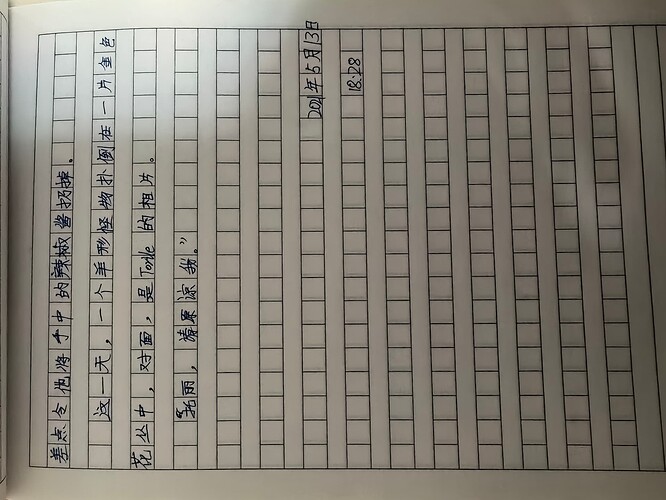 差点令他将手中的辣椒酱扔掉。
这一天，一个羊形怪物扑倒在一片金色
花丛中，对面，是Torile的相片。
“托丽，请原谅我。”
2021年5月13日
18:28